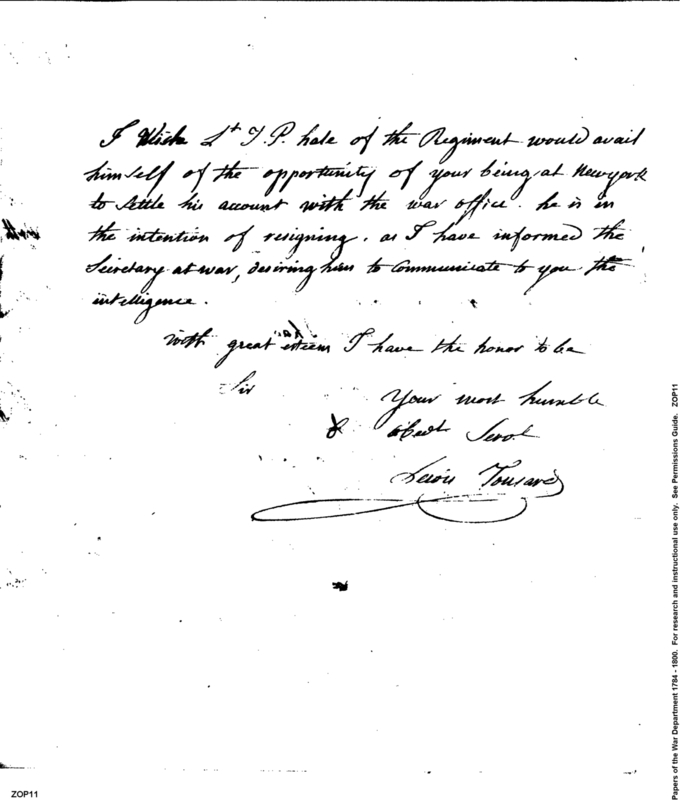 I Wish Lt T.P. hale of the Regiment would avail
himself of the opportunity of your being at Newyork
to settle his account with the war office. he is in
the intention of resigning. as I have informed the
Secretary at war, desiring him to Communicate to you the
intelligence.
with great esteem I have the honor to be
Sir
Your most humble
& obedt Servt
Lewis Tousard
ZOP11
Papers of the War Department 1784 - 1800. For research and instructional use only. See Permissions Guide. ZOP11